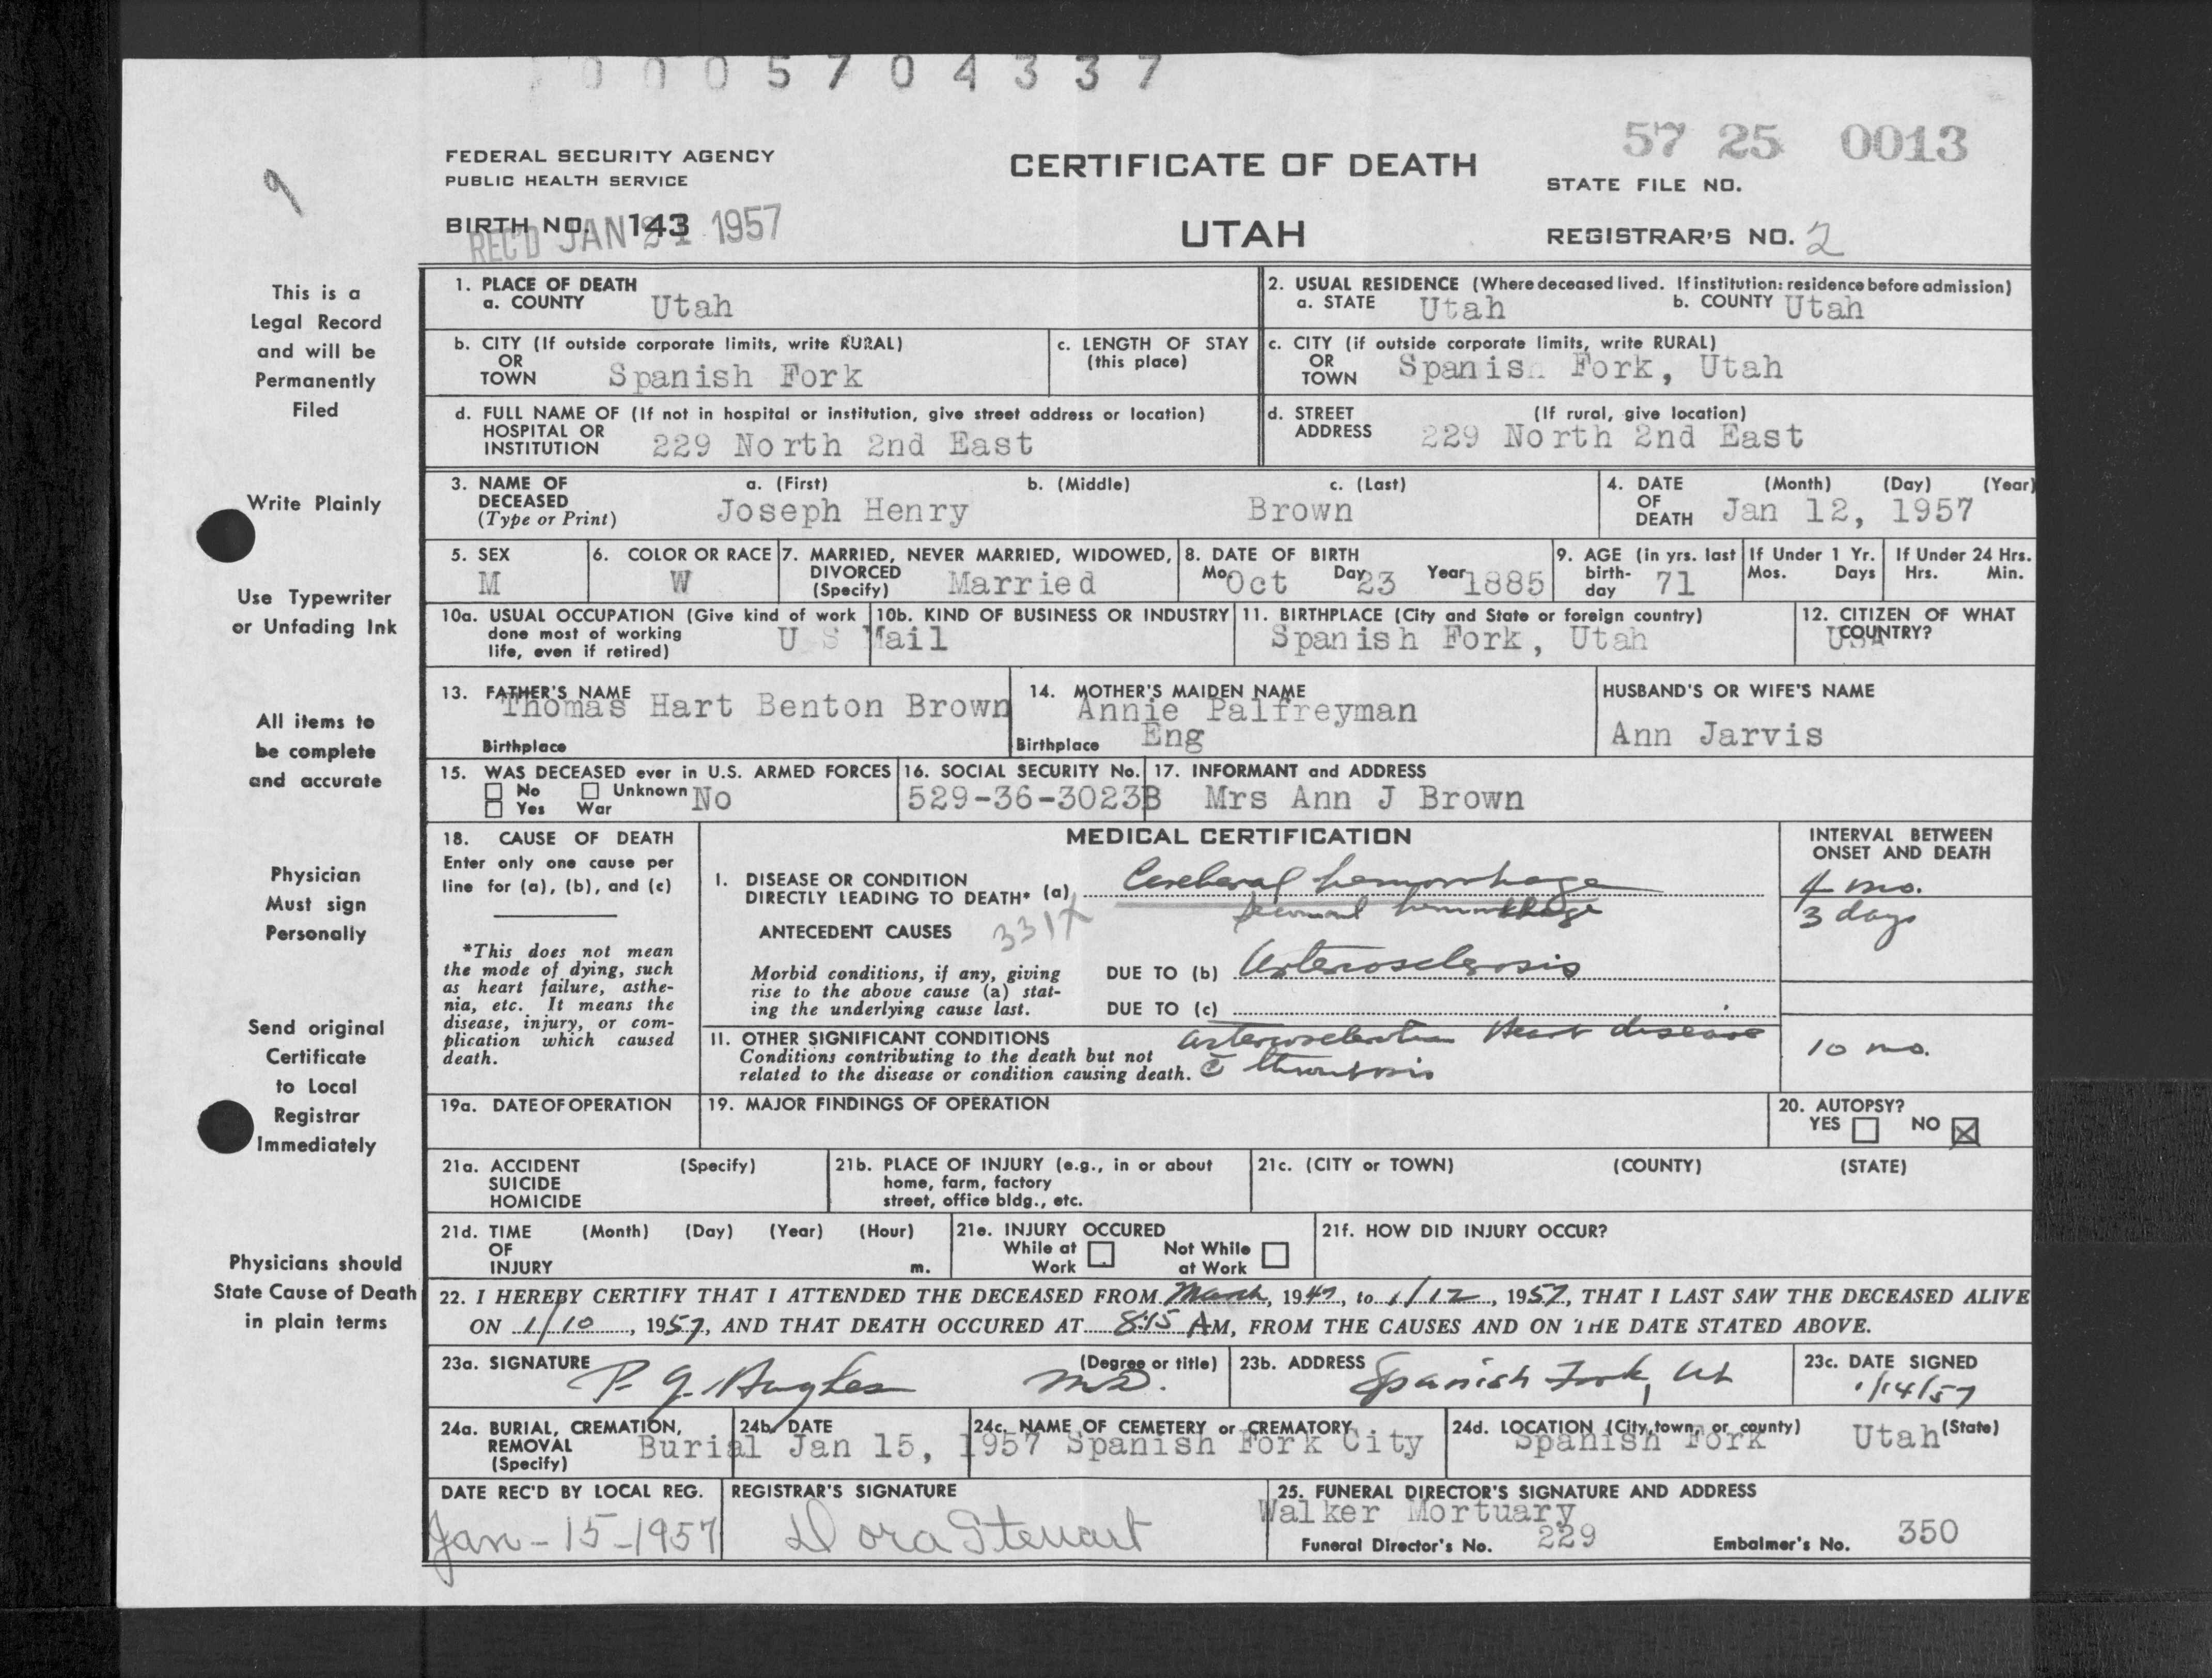 0005704337
57 25 0013
FEDERAL SECURITY AGENCY
PUBLIC HEALTH SERVICE
CERTIFICATE OF DEATH
STATE FILE NO.
BIRTH NO. 143
REC'D JAN 21 1957
UTAH
REGISTRAR'S NO. 2
9
This is a
Legal Record
and will be
Permanently
Filed
Write Plainly
Use Typewriter
or Unfading Ink
All items to
be complete
and accurate
Physician
Must sign
Personally
Send original
Certificate
to Local
Registrar
Immediately
Physicians should
State Cause of Death
in plain terms
1. PLACE OF DEATH
a. COUNTY Utah
2. USUAL RESIDENCE (Where deceased lived. If institution: residence before admission)
a. STATE Utah b. COUNTY Utah
b. CITY (If outside corporate limits, write RURAL)
OR
TOWN Spanish Fork
c. LENGTH OF STAY
(this place)
c. CITY (if outside corporate limits, write RURAL)
OR
TOWN Spanish Fork, Utah
d. FULL NAME OF (If not in hospital or institution, give street address or location)
HOSPITAL OR
INSTITUTION 229 North 2nd East
d. STREET (If rural, give location)
ADDRESS 229 North 2nd East
3. NAME OF a. (First) b. (Middle) c. (Last)
DECEASED
(Type or Print) Joseph Henry Brown
4. DATE (Month) (Day) (Year)
OF
DEATH Jan 12, 1957
5. SEX
M
6. COLOR OR RACE
W
7. MARRIED, NEVER MARRIED, WIDOWED,
DIVORCED
(Specify) Married
8. DATE OF BIRTH
Mo. Oct Day 23 Year 1885
9. AGE (in yrs. last
birth-
day 71
If Under 1 Yr.
Mos. Days
If Under 24 Hrs.
Hrs. Min.
10a. USUAL OCCUPATION (Give kind of work
done most of working
life, even if retired)
10b. KIND OF BUSINESS OR INDUSTRY
U S Mail
11. BIRTHPLACE (City and State or foreign country)
Spanish Fork, Utah
12. CITIZEN OF WHAT
COUNTRY?
USA
13. FATHER'S NAME
Thomas Hart Benton Brown
Birthplace
14. MOTHER'S MAIDEN NAME
Annie Palfreyman
Birthplace Eng
HUSBAND'S OR WIFE'S NAME
Ann Jarvis
15. WAS DECEASED ever in U.S. ARMED FORCES
No Unknown No
Yes War
16. SOCIAL SECURITY No.
529-36-3023B
17. INFORMANT and ADDRESS
Mrs Ann J Brown
18. CAUSE OF DEATH
Enter only one cause per
line for (a), (b), and (c)
*This does not mean
the mode of dying, such
as heart failure, asthe-
nia, etc. It means the
disease, injury, or com-
plication which caused
death.
MEDICAL CERTIFICATION
INTERVAL BETWEEN
ONSET AND DEATH
I. DISEASE OR CONDITION
DIRECTLY LEADING TO DEATH* (a) Cerebral hemorrhage 4 mo.
hemorrhage 3 days
331X
ANTECEDENT CAUSES
Morbid conditions, if any, giving
rise to the above cause (a) stat-
ing the underlying cause last.
DUE TO (b) Arteriosclerosis
DUE TO (c)
II. OTHER SIGNIFICANT CONDITIONS
Conditions contributing to the death but not
related to the disease or condition causing death.
Arteriosclerotic Heart disease
c̄ thrombosis
10 mo.
19a. DATE OF OPERATION
19. MAJOR FINDINGS OF OPERATION
20. AUTOPSY?
YES NO X
21a. ACCIDENT (Specify)
SUICIDE
HOMICIDE
21b. PLACE OF INJURY (e.g., in or about
home, farm, factory
street, office bldg., etc.
21c. (CITY or TOWN) (COUNTY) (STATE)
21d. TIME (Month) (Day) (Year) (Hour)
OF
INJURY m.
21e. INJURY OCCURED
While at Not While
Work at Work
21f. HOW DID INJURY OCCUR?
22. I HEREBY CERTIFY THAT I ATTENDED THE DECEASED FROM March, 1947, to 1/12, 1957, THAT I LAST SAW THE DECEASED ALIVE
ON 1/10, 1957, AND THAT DEATH OCCURED AT 8:15 AM, FROM THE CAUSES AND ON THE DATE STATED ABOVE.
23a. SIGNATURE (Degree or title)
P. G. Hughes M.D.
23b. ADDRESS
Spanish Fork, Ut
23c. DATE SIGNED
1/14/57
24a. BURIAL, CREMATION,
REMOVAL
(Specify) Burial
24b. DATE
Jan 15, 1957
24c. NAME OF CEMETERY or CREMATORY
Spanish Fork City
24d. LOCATION (City, town, or county) (State)
Spanish Fork Utah
DATE REC'D BY LOCAL REG.
Jan-15-1957
REGISTRAR'S SIGNATURE
Dora Stewart
25. FUNERAL DIRECTOR'S SIGNATURE AND ADDRESS
Walker Mortuary
Funeral Director's No. 229 Embalmer's No. 350